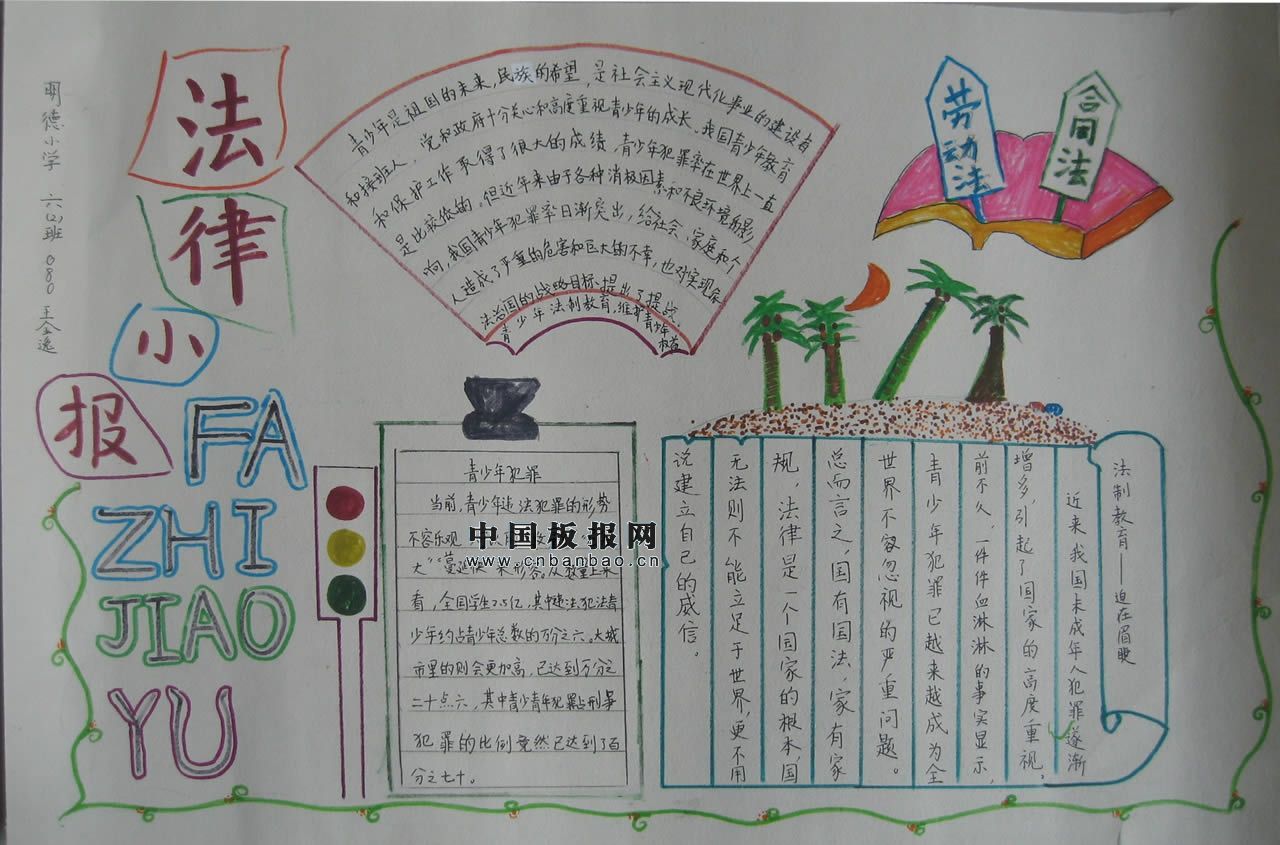 明德小学 六(2)班 080 王金逸
法
律
小
报
FA
ZHI
JIAO
YU
青少年是祖国的未来,民族的希望,是社会主义现代化事业的建设者
和接班人。党和政府十分关心和高度重视青少年的成长。我国青少年教育
和保护工作取得了很大的成绩,青少年犯罪率在世界上一直
是比较低的,但近年来由于各种消极因素和不良环境的影
响,我国青少年犯罪率日渐突出,给社会、家庭和个
人造成了严重的危害和巨大的不幸,也对实现
法治国的战略目标提出了
青少年法制教育,维护青少年
权益
劳动法
合同法
青少年犯罪
当前,青少年违法犯罪的形势
不容乐观,
中国板报网
www.cnbanbao.cn
大""蔓延快"来形容。从数量上来
看,全国学生2.5亿,其中违法犯法青
少年约占青少年总数的万分之六。大城
市里的则会更加高,已达到万分之
二十点六,其中青少青年犯罪占刑事
犯罪的比例竟然已达到了百
分之七十。
法制教育——迫在眉睫
近来我国未成年人犯罪逐渐
增多引起了国家的高度重视。
前不久,一件件血淋淋的事实显示,
青少年犯罪已越来越成为全
世界不容忽视的严重问题。
总而言之,国有国法,家有家
规,法律是一个国家的根本,国
无法则不能立足于世界,更不用
说建立自己的威信。